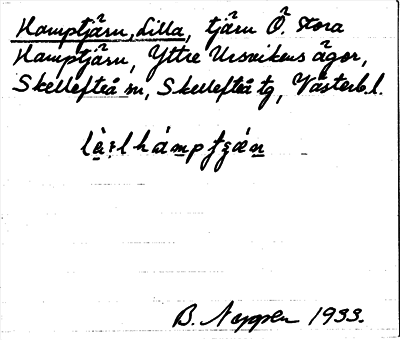 Hamptjärn, Lilla, tjärn Ö. Stora
Hamptjärn, Yttre Ursvikens ägor,
Skellefteå sn, Skellefteå tg, Västerb.l.
B. Nygren 1933.